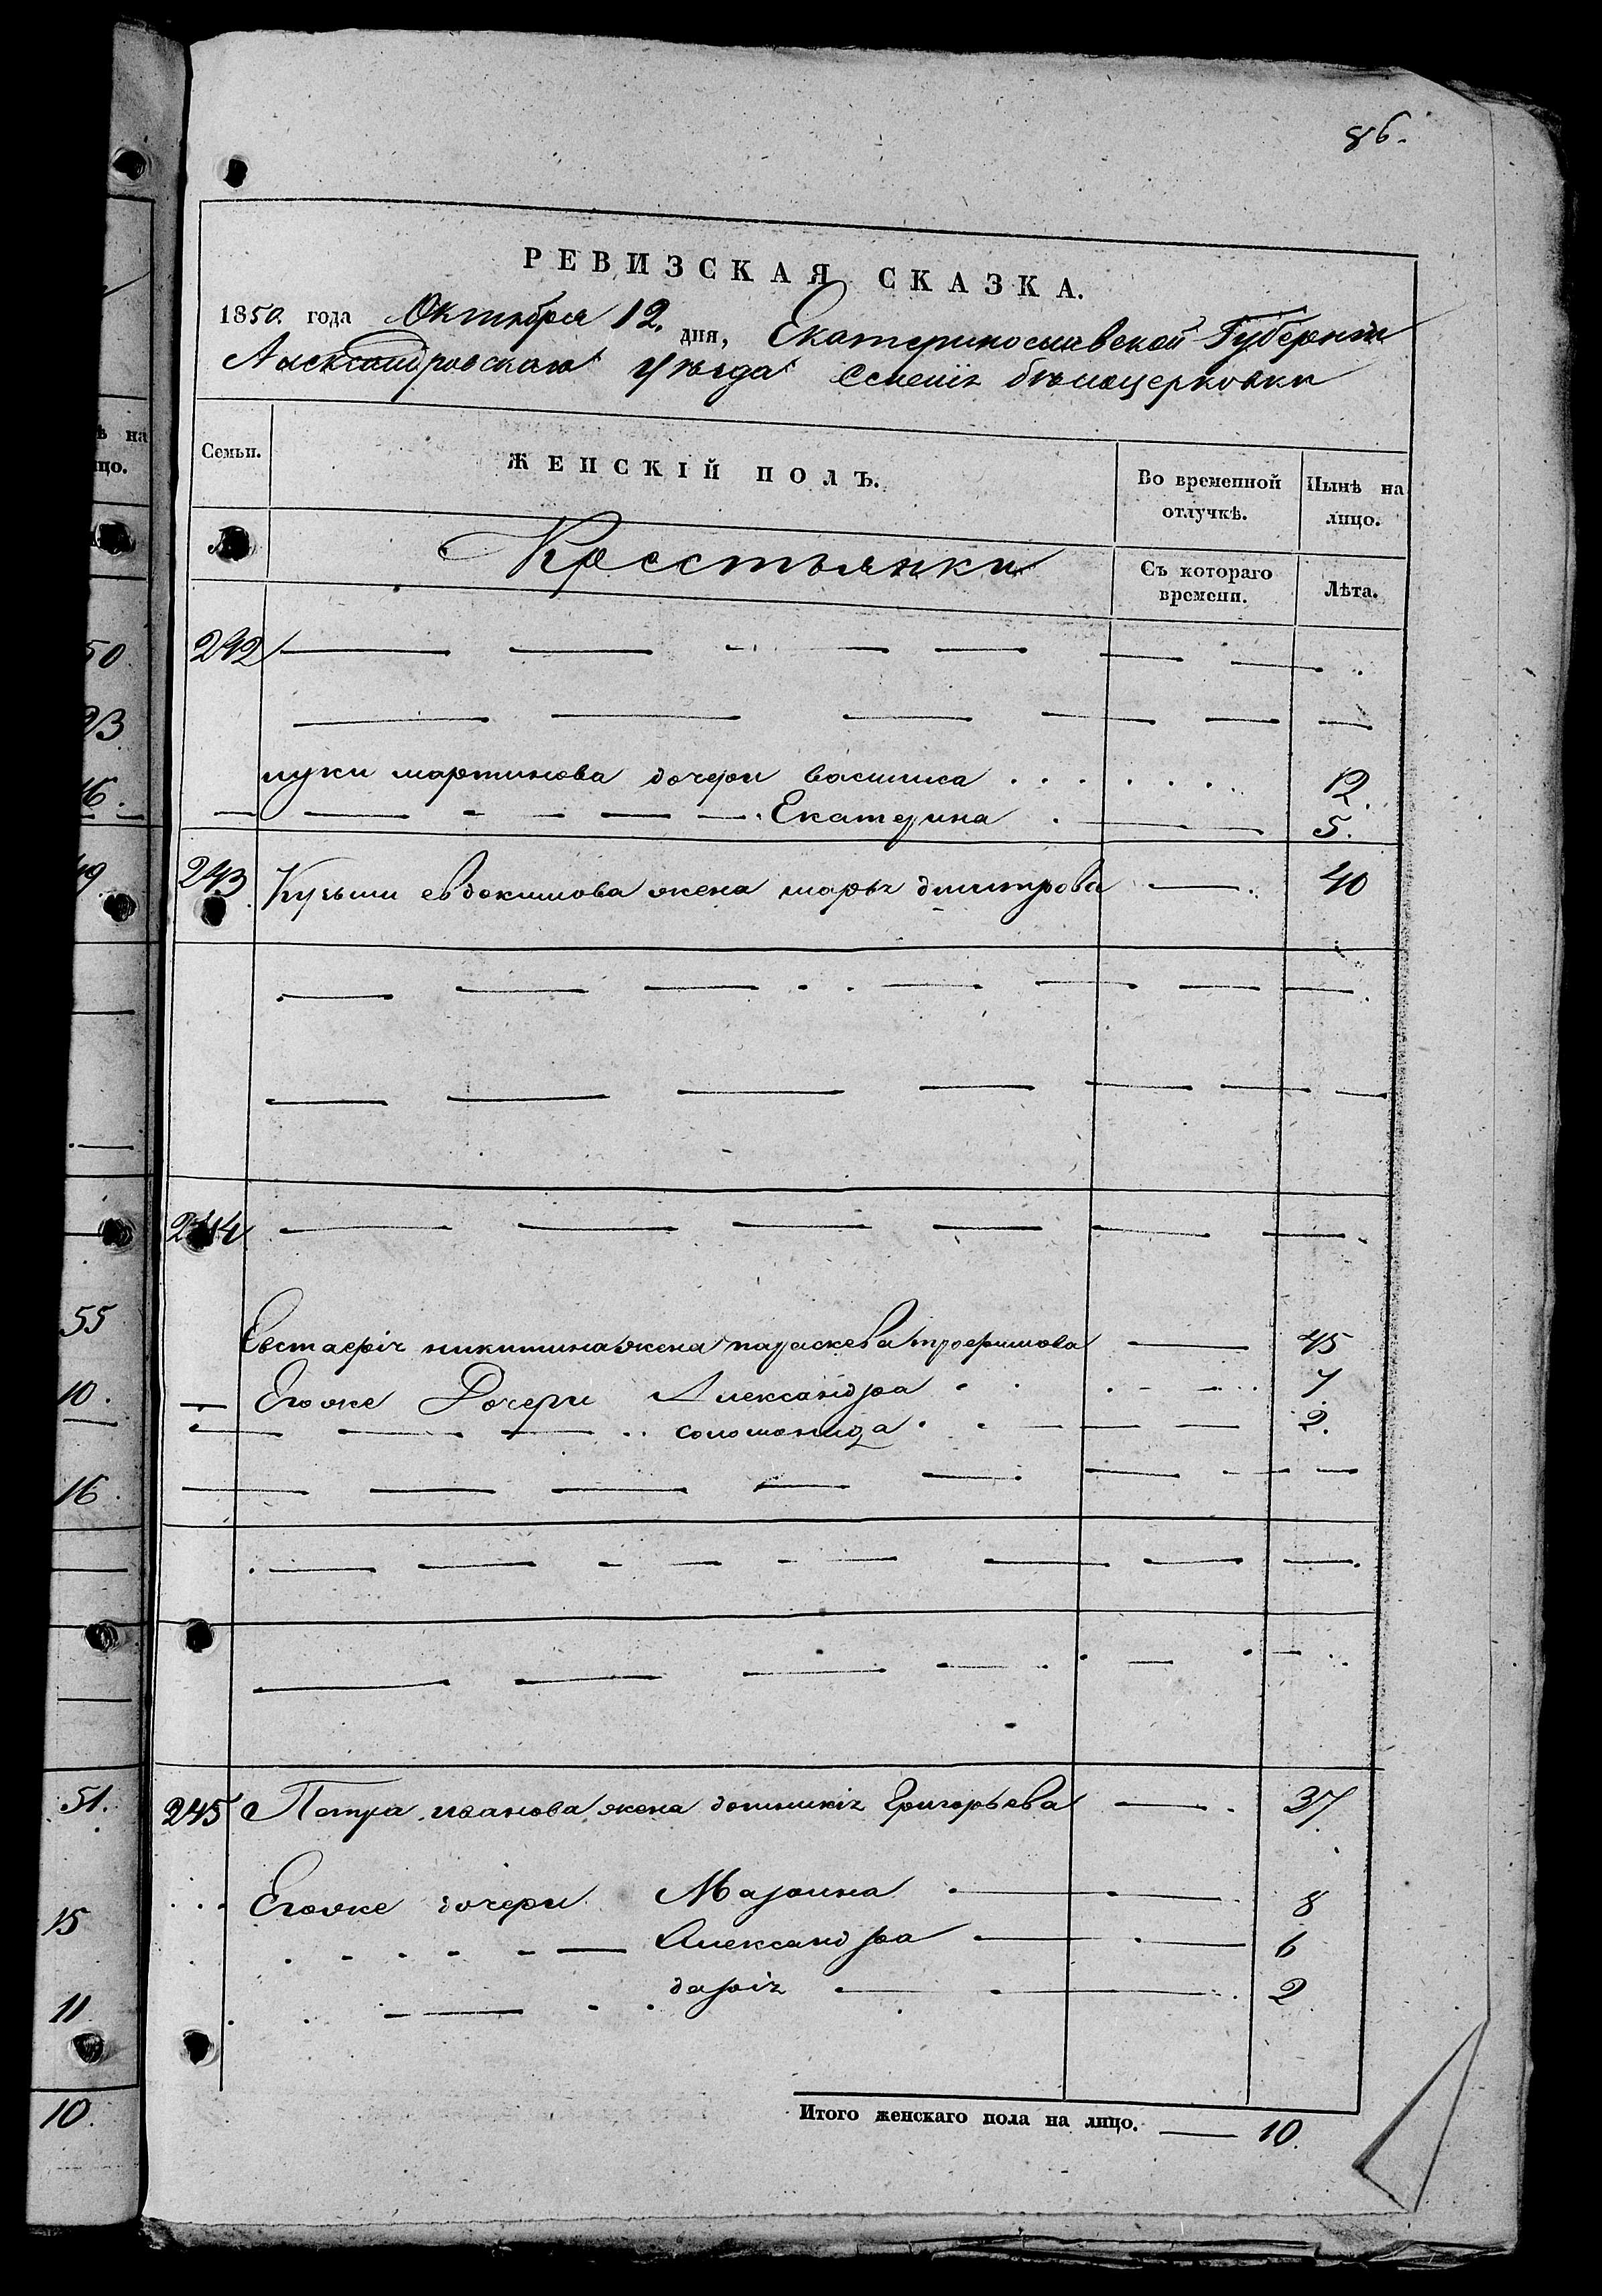 86.
РЕВИЗСКАЯ СКАЗКА.
1850. года Октября 12. дня, Екатеринославской Губерніи
Александровскаго уѣзда Селенія бѣлоцерковки
ѣ на
цо.
Семьи. ЖЕНСКІЙ ПОЛЪ. Во временной отлучкѣ. Нынѣ на лицо.
Крестьянки Съ котораго времени. Лѣта.
50 242
23
луки мартинова дочери василиса 12.
16. Екатерина 5.
49 243 Кузьмы евдокимова жена марья дмитрова 40
244
55 Евстафія никитина жена параскева трофимова 45
10. Егоже Дочери Александра 7
соломонида 2.
16.
51. 245 Петра иванова жена домникія Григорьева 37
15 Егоже дочери Марина 8
Александра 6
11 дарія 2
10. Итого женскаго пола на лицо. 10.